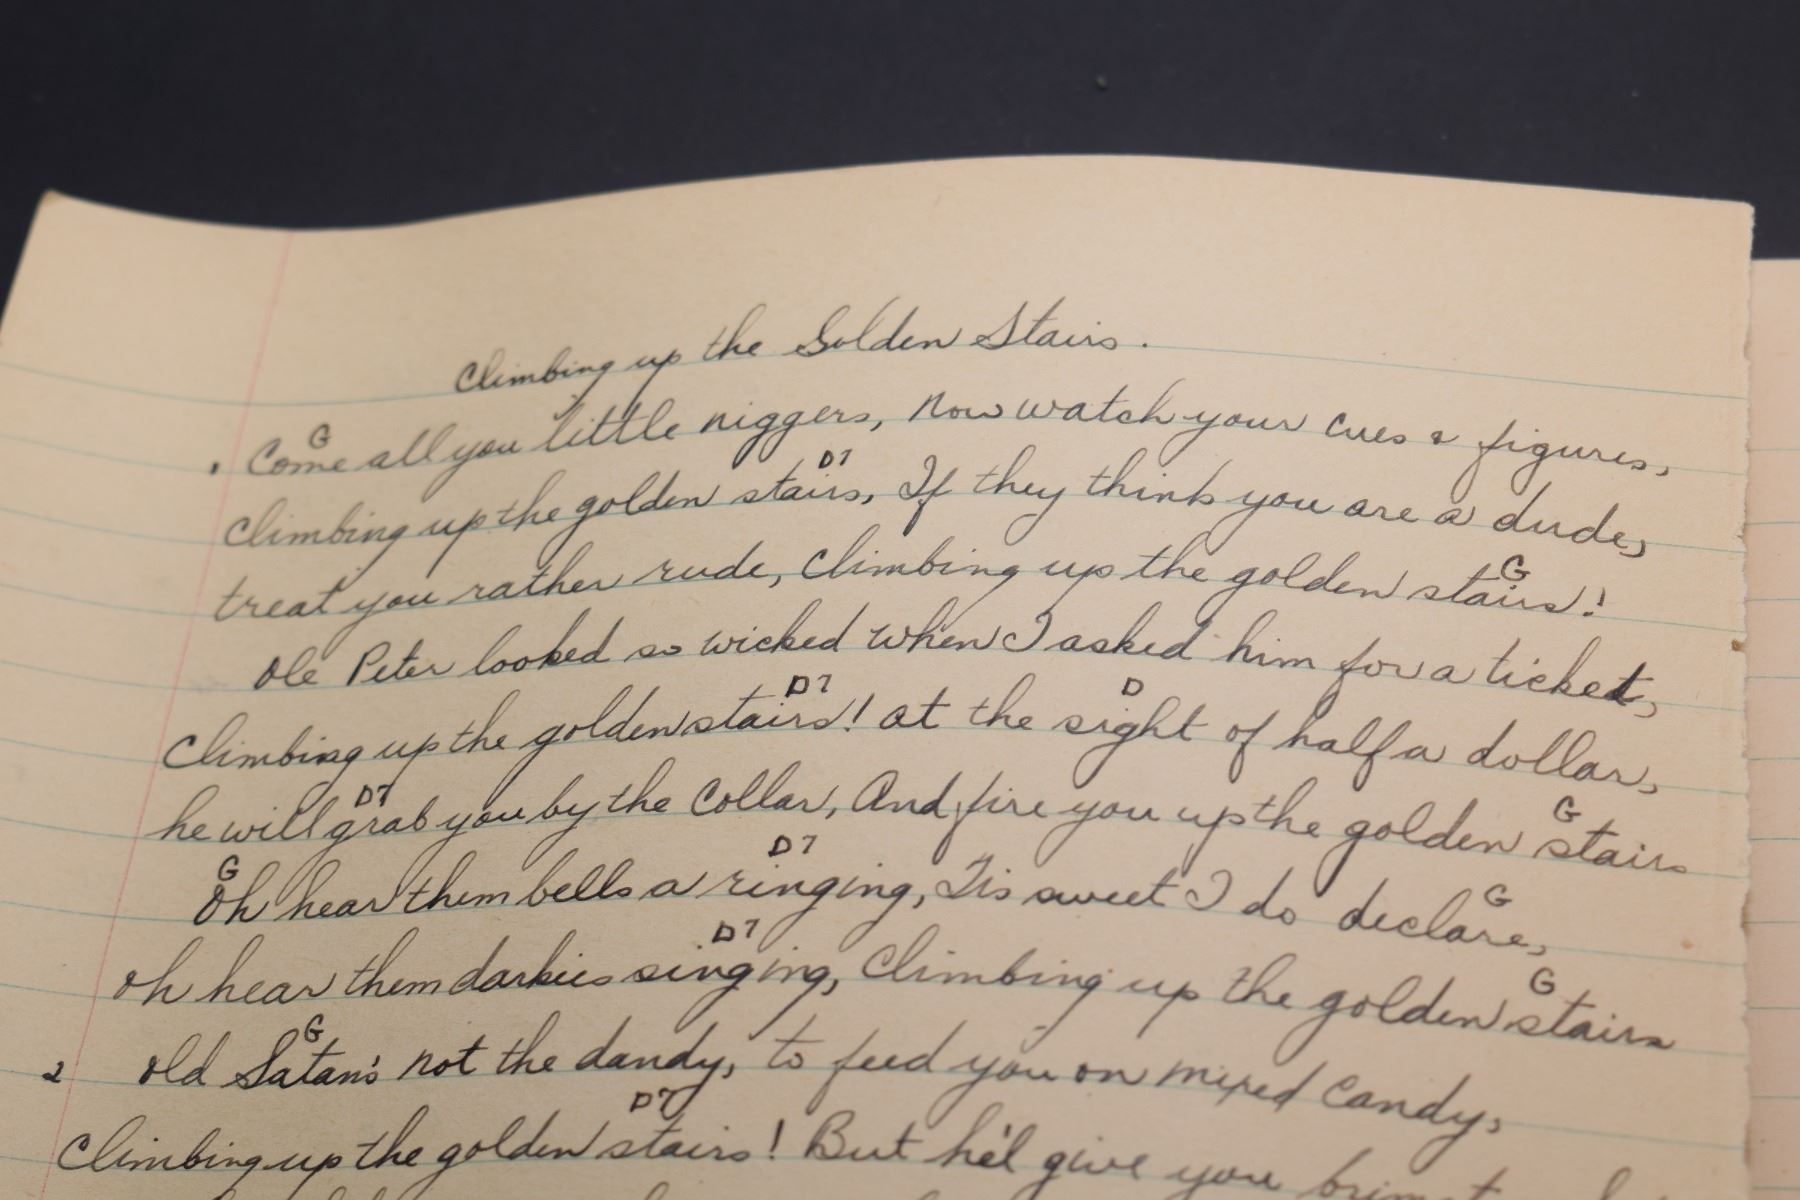 Climbing up the Golden Stairs.
G
1 Come all you little niggers, now watch your cues & figures,
D7
Climbing up the golden stairs, If they think you are a dude,
treat you rather rude, Climbing up the golden stairs!
G
Ole Peter looked so wicked when I asked him for a ticket,
D7 D
Climbing up the golden stairs! at the sight of half a dollar,
D7 G
he will grab you by the collar, And fire you up the golden stairs
G D7 G
Oh hear them bells a ringing, Tis sweet I do declare,
D7 G
Oh hear them darkies singing, Climbing up the golden stairs
G
2 Old Satan's not the dandy, to feed you on mixed candy,
D7
Climbing up the golden stairs! But he'l give you